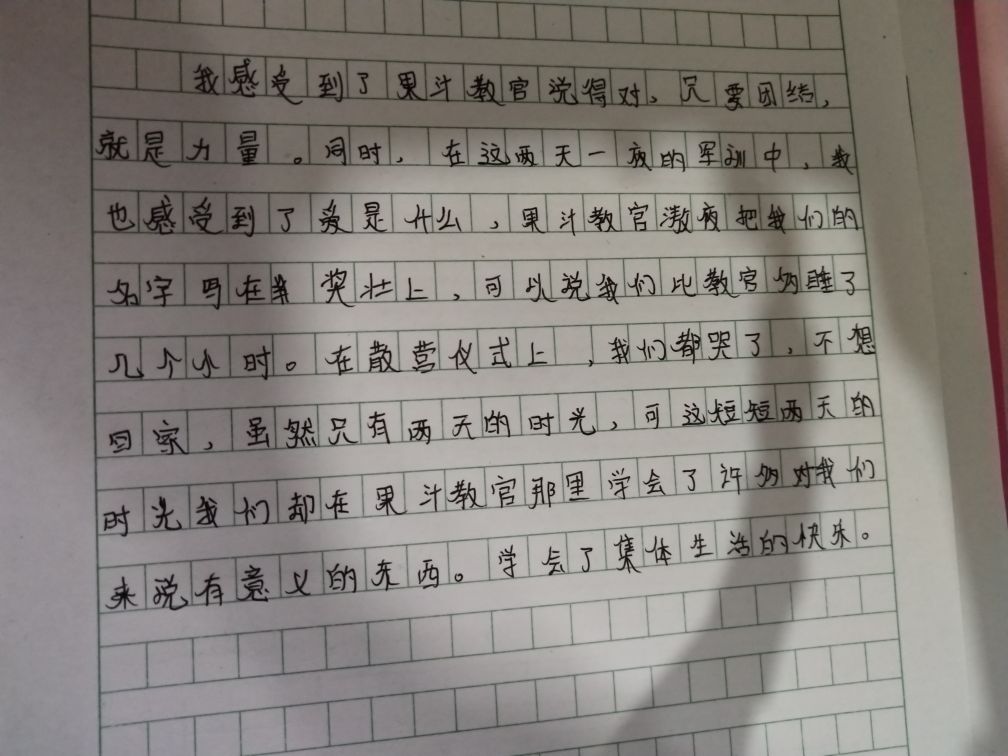 我感受到了果斗教官说得对，只要团结，
就是力量。同时，在这两天一夜的军训中，我
也感受到了爱是什么，果斗教官熬夜把我们的
名字写在奖状上，可以说我们比教官多睡了
几个小时。在散营仪式上，我们都哭了，不想
回家，虽然只有两天的时光，可这短短两天的
时光我们却在果斗教官那里学会了许多对我们
来说有意义的东西。学会了集体生活的快乐。